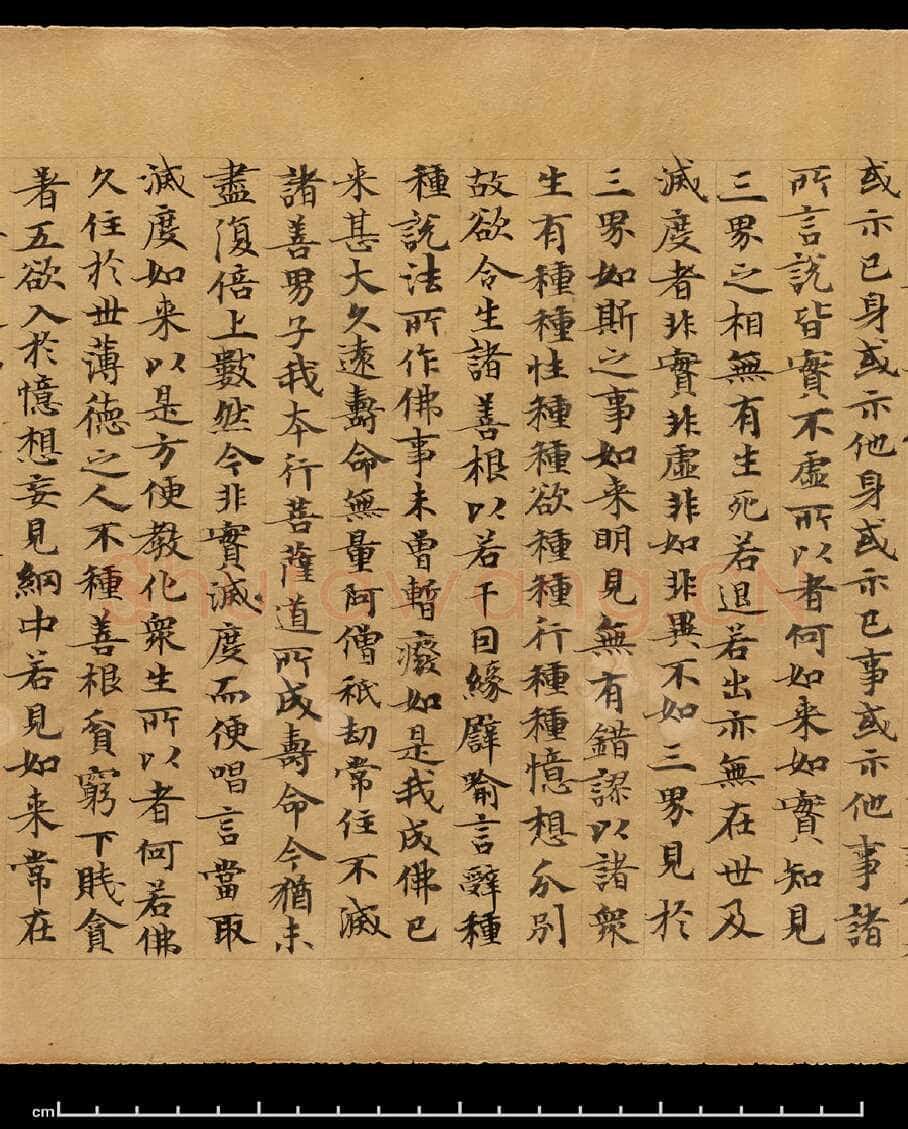 或示已身或示他身或示已事或示他事諸
所言說皆實不虛所以者何如来如實知見
三界之相無有生死若退若出亦無在世及
滅度者非實非虛非如非異不如三界見於
三界如斯之事如来明見無有錯謬以諸衆
生有種種性種種欲種種行種種憶想分別
故欲令生諸善根以若干因緣譬喻言辭種
種說法所作佛事未曾暫癈如是我成佛已
来甚大久遠壽命無量阿僧祇劫常住不滅
諸善男子我本行菩薩道所成壽命今猶未
盡復倍上數然今非實滅度而便唱言當取
滅度如来以是方便教化衆生所以者何若佛
久住於世薄德之人不種善根貧窮下賤貪
著五欲入於憶想妄見網中若見如来常在
Shufawang.CN
cm